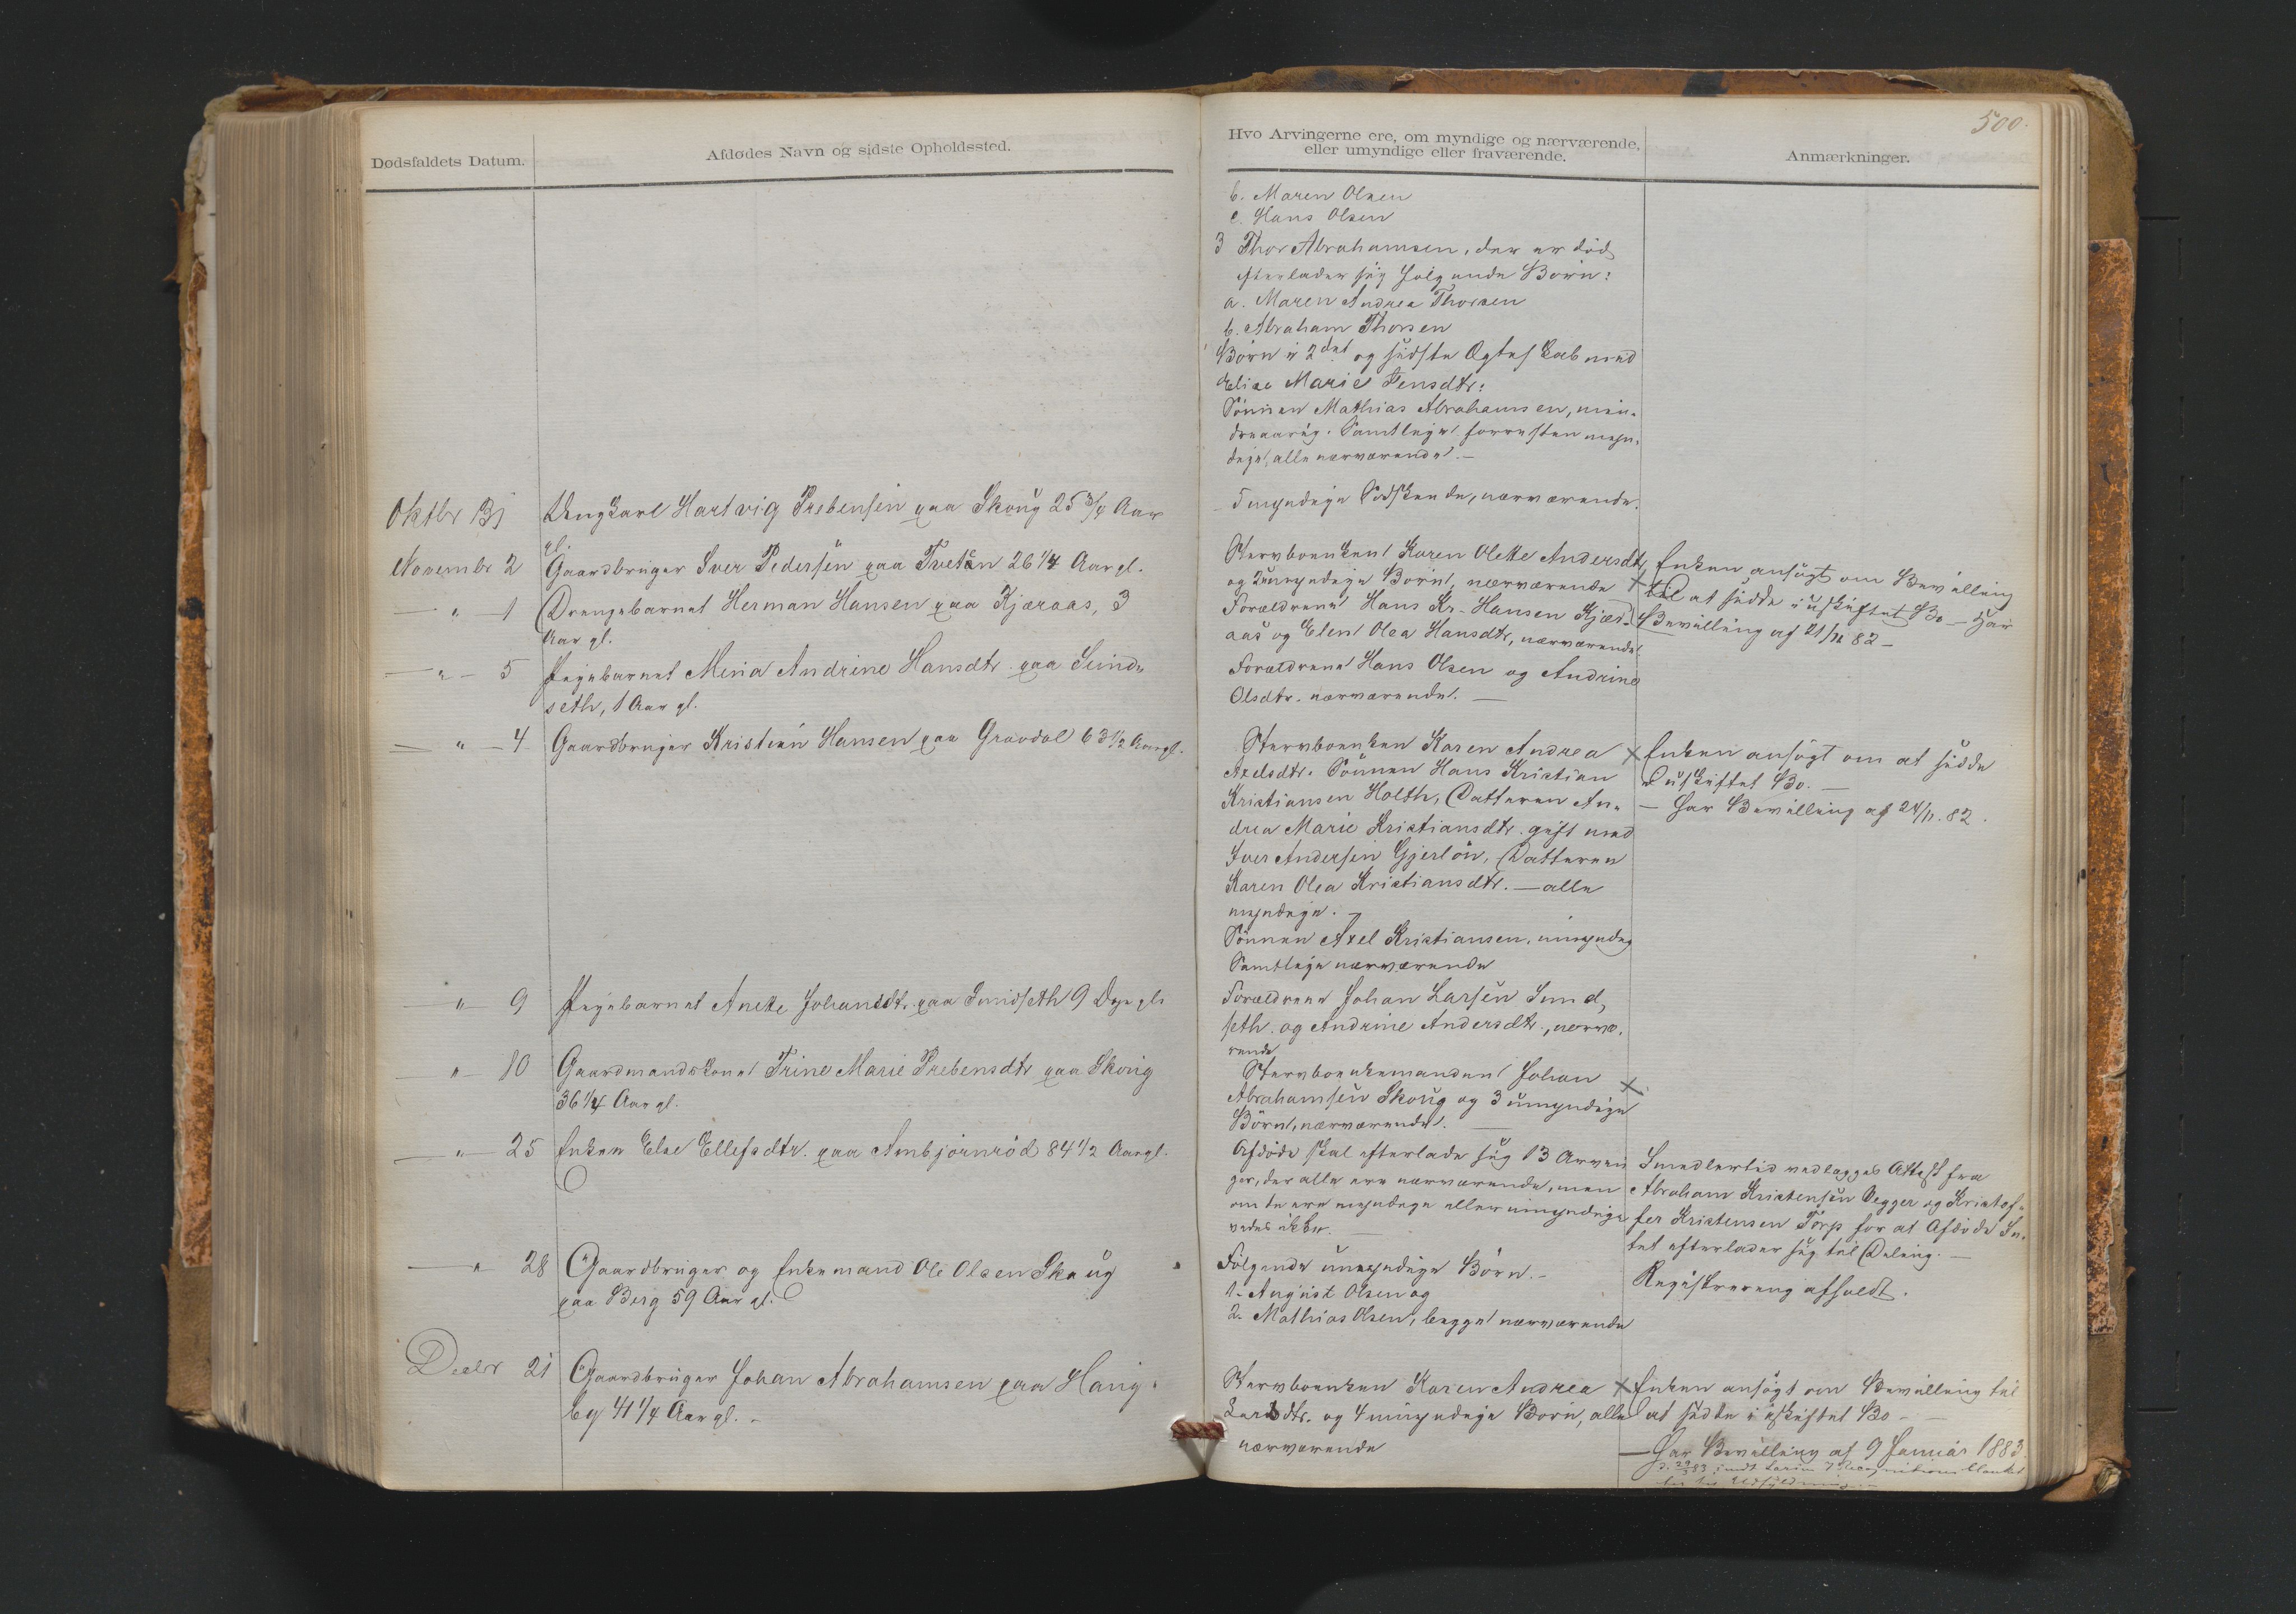 500.
Dødsfaldets Datum.
Afdødes Navn og sidste Opholdssted.
Hvo Arvingerne ere, om myndige og nærværende,
eller umyndige eller fraværende.
Anmærkninger.
b. Maren Olsen
c. Hans Olsen
3 Thor Abrahamsen, der er död
efterlader sig følgende Börn:
a. Maren Andrea Thorsen
b. Abraham Thorsen
Börn i 2det og sidste Ægteskab med
Elise Marie Jensdtr:
Sönnen Mathias Abrahamsen, min-
dreaarig. Samtlige forresten myn-
dige, alle nærværende. —
Oktbr 31
Ungkarl Hartvig Prebensen paa Skoug 25 3/4 Aar
gl.
5 myndige Sødskende, nærværende.
Novembr 2
Gaardbruger Iver Pedersen paa Tveten 26 1/4 Aar gl.
Stervboenken Karen Olette Andersdtr,
og 2 umyndige Börn, nærværende
× Enken ansögt om Bevilling
til at sidde i uskiftet Bo — Har
Bevilling af 21/11 82 —
— " — 1
Drengebarnet Herman Hansen paa Kjæraas, 3
Aar gl.
Forældrene Hans Kr. Hansen Kjær-
aas og Elen Olea Hansdtr, nærværende.
— " — 5
Pigebarnet Mina Andrine Hansdtr. paa Sund-
seth, 1 Aar gl.
Forældrene Hans Olsen og Andrine
Olsdtr. nærværende. —
— " — 4
Gaardbruger Kristian Hansen paa Gravdal 63 1/2 Aar gl.
Stervboenken Karen Andrea
Axelsdtr. Sönnen Hans Kristian
Kristiansen Holth, Datteren An-
drea Marie Kristiansdtr. gift med
Iver Andersen Gjerlön, Datteren
Karen Olea Kristiansdtr. — alle
myndige. —
Sönnen Axel Kristiansen, umyndig
Samtlige nærværende
× Enken ansögt om at sidde
i uskiftet Bo. —
— Har Bevilling af 24/11. 82.
" 9
Pigebarnet Anette Johansdtr. paa Smidseth 9 Dage gl.
Forældrene Johan Larsen Smid-
seth og Andrine Andersdtr., nærvæ-
rende
— " — 10
Gaardmandskone Trine Marie Prebensdtr paa Skoug
36 1/4 Aar gl.
Stervboenkemanden Johan ×
Abrahamsen Skoug og 3 umyndige
Börn, nærværende. —
— " — 25
Enken Else Ellefsdtr. paa Ambjörnröd 84 1/2 Aar gl.
Afdöde skal efterlade sig 13 Arvin
ger, der alle ere nærværende, men
om de ere myndige eller umyndige
vides ikke. —
Imidlertid vedlægges Attest fra
Abraham Kristensen Vegger og Kristof-
fer Kristensen Torp for at Afdöde In-
tet efterlader sig til Deling. —
— " 28
Gaardbruger og Enkemand Ole Olsen Skaug
paa Berg 59 Aar gl.
Fölgende umyndige Börn. —
1. August Olsen og
2. Mathias Olsen, begge nærværende
Registrering afholdt.
Decbr 21
Gaardbruger Johan Abrahamsen paa Haug-
by 41 1/4 Aar gl. —
Stervboenken Karen Andrea
Larsdtr. og 4 umyndige Börn, alle
nærværende
× Enken ansögt om Bevilling til
at sidde i uskiftet Bo —
— Har Bevilling af 9 Januar 1883